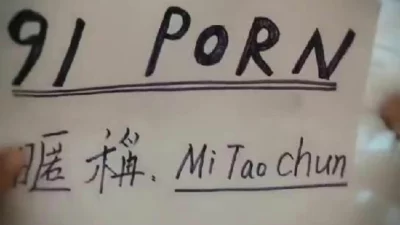 91 PORN
暱稱. MiTaochun